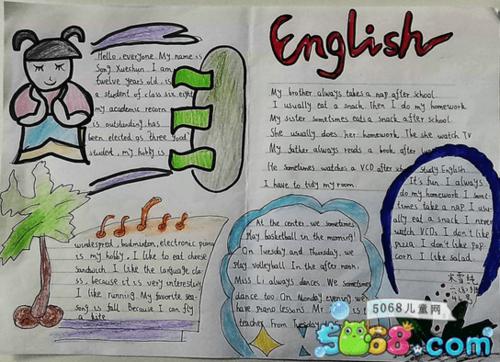 English
Hello, everyone My name is
Song Xueshun I am
twelve years old, is
a student of class six eight
my academic recorn
is outstanding has
been elected as three good
student, my hobby is
My brother always takes a nap after school.
I usually eat a snack. then I do my homework.
My sister sometimes eat a snack after school.
She usually does her homework. The she watch TV
My father always reads a book after
He Sometimes watches a VCD after
I have to tidy my room
study English
It's fun. I always
do my homework I some-
times take a nap I usu-
ally eat a snack I never
watch VCD. I don't like
pizza. I don't like pop-
corn I like salad.
widespread, badminton, electronic piano
is my hobby. I like to eat cheese
Sandwich. I like the language cla-
ss, because it is very interesting
I like running. My favorite sea-
Song is fall Because I can fly
a kite
At the center, we sometimes
Play basketball in the morning!
On Tuesday and Thursday, we
play volleyball. In the after noon,
Miss Li always dances. We Sometimes
dance too. On Monday evening we
have piano lessons Mr. is
teaches from Tuesday
5068儿童网
5068.com